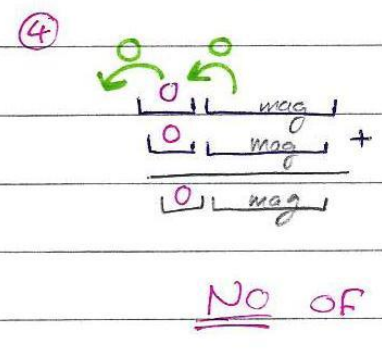 4
0 0
0 mag
0 mag +
0 mag
NO OF